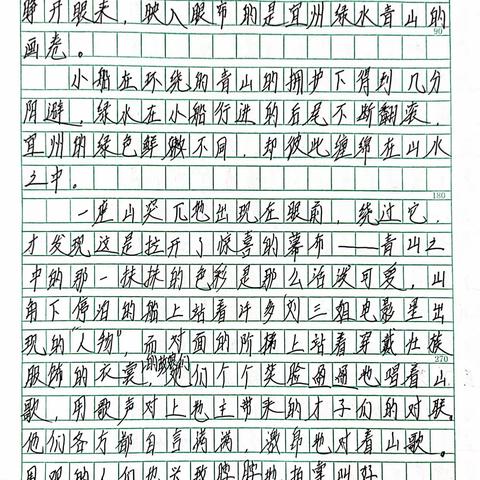 睁开眼来，映入眼帘的是宜州绿水青山的
90
画卷。
小船在环绕的青山的拥护下得到几分
阴避，绿水在小船行进的后尾不断翻滚，
宜州的绿色鲜嫩不同，却彼此缠绵在山水
之中。
180
一座山突兀地出现在眼前，绕过它，
才发现这是拉开了惊喜的幕布——青山之
中的那一抹抹的色彩是那么活泼可爱，山
角下停泊的船上站着许多刘三姐电影里出
现的“人物”，而对面的阶梯上站着穿戴壮族
270
服饰的衣裳，她们个个笑脸 地唱着山
歌，用歌声对上地主带来的才子们的对联。
他们各方都自言满满，激昂地对着山歌。
的人们也兴致勃勃地拍掌叫好